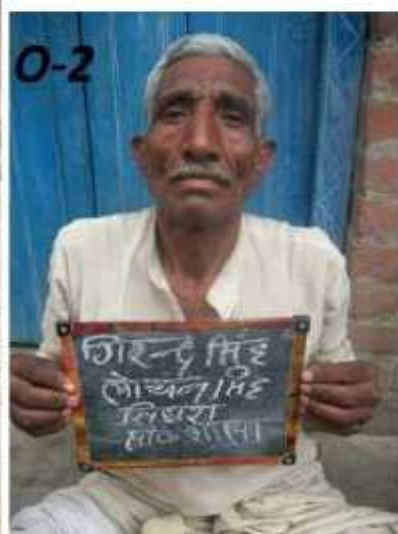 O-2
गिरन्द सिंह
लोचन सिंह
तिधरा